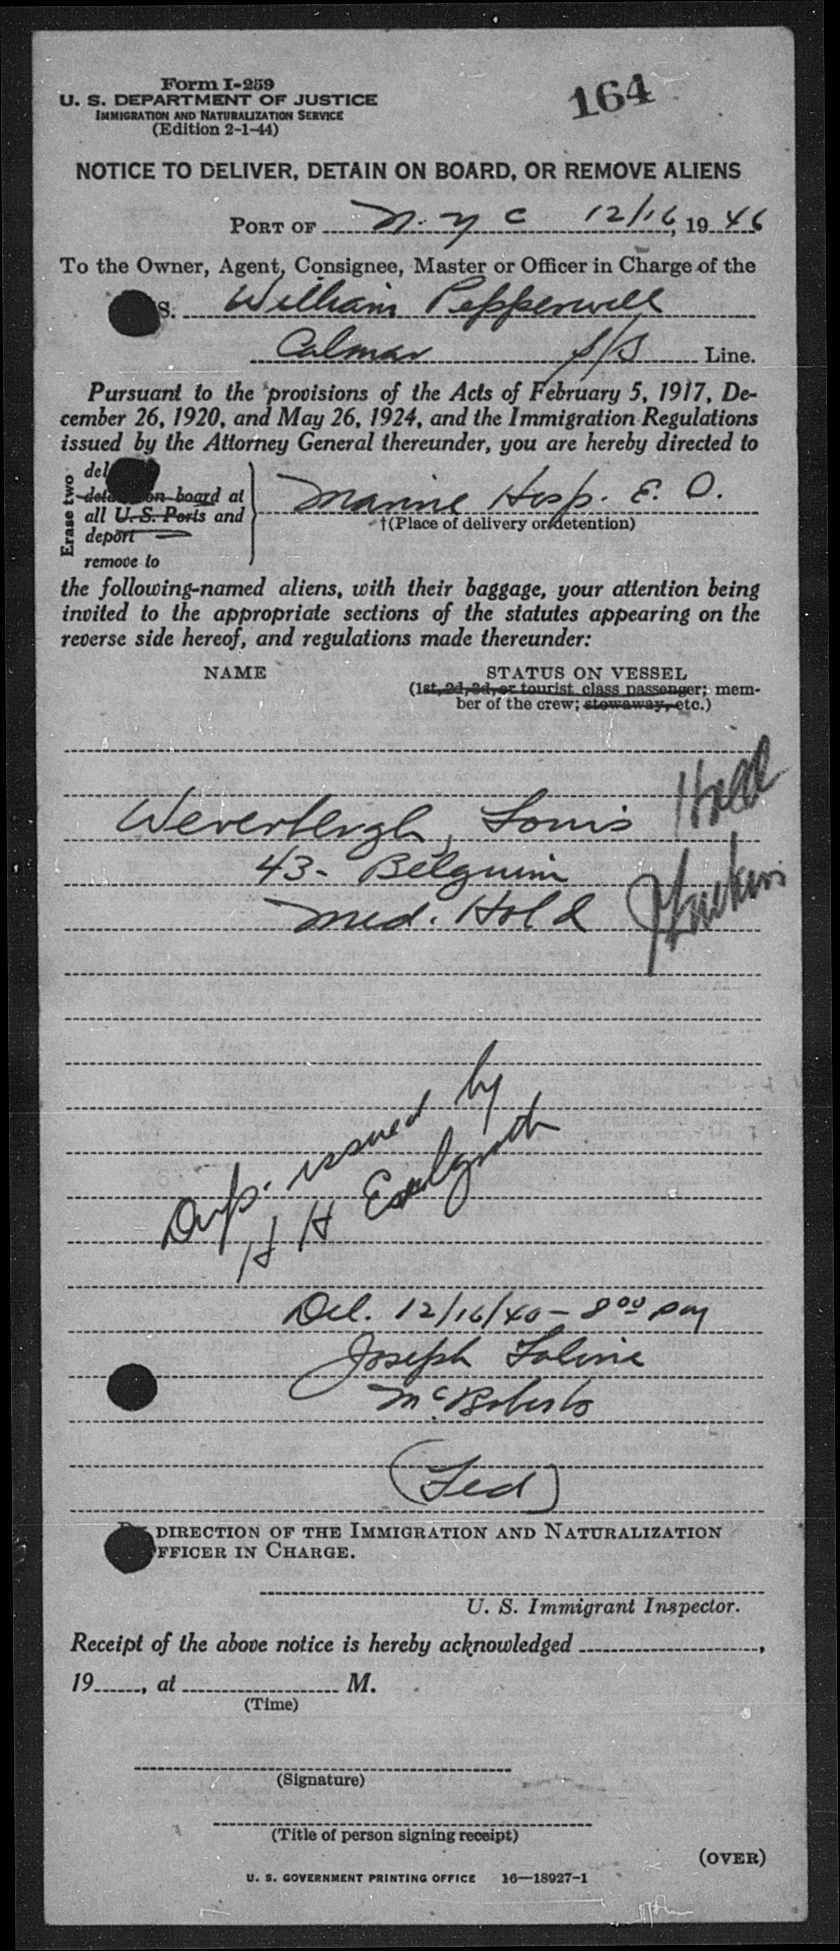 Form I-259
U. S. DEPARTMENT OF JUSTICE
IMMIGRATION AND NATURALIZATION SERVICE
(Edition 2-1-44)
164
NOTICE TO DELIVER, DETAIN ON BOARD, OR REMOVE ALIENS
PORT OF N. Y C 12/16, 19 46
To the Owner, Agent, Consignee, Master or Officer in Charge of the
S. William Pepperwell
Calmar S/S Line.
Pursuant to the provisions of the Acts of February 5, 1917, De-
cember 26, 1920, and May 26, 1924, and the Immigration Regulations
issued by the Attorney General thereunder, you are hereby directed to
Erase two
del
on board at
all U. S. Ports and
deport
remove to
Marine Hosp. E. O.
†(Place of delivery or detention)
the following-named aliens, with their baggage, your attention being
invited to the appropriate sections of the statutes appearing on the
reverse side hereof, and regulations made thereunder:
NAME STATUS ON VESSEL
(1st, 2d, 3d, or tourist class passenger; mem-
ber of the crew; stowaway, etc.)
Weverbergh, Louis Hold
43- Belguim
Med. Hold
Dup. issued by
H H
Del. 12/16/40 - 8 00 pm
Joseph
McRoberts
(Fed)
DIRECTION OF THE IMMIGRATION AND NATURALIZATION
FFICER IN CHARGE.
U. S. Immigrant Inspector.
Receipt of the above notice is hereby acknowledged ,
19 , at M.
(Time)
(Signature)
(Title of person signing receipt)
(OVER)
U. S. GOVERNMENT PRINTING OFFICE 16—18927-1